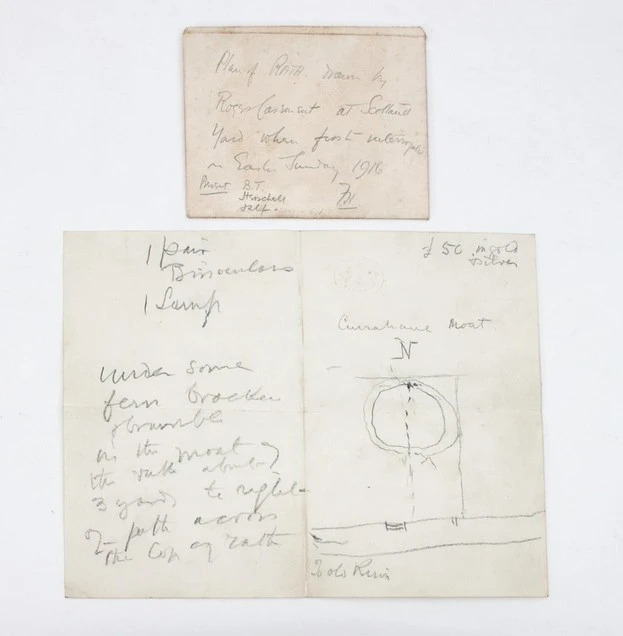 Plan of RATH drawn by
Roger Casement at Scotland
Yard when first interrogated
on Easter Sunday 1916
Present B.T.
Herschell
Self.
1 Pair
Binoculars
1 Lamp
under some
fern bracken
& bramble
in the moat of
the rath about
3 yards to right
of path across
the top of rath
£50 in gold
& silver
Currahane Moat
N
To old Ruin